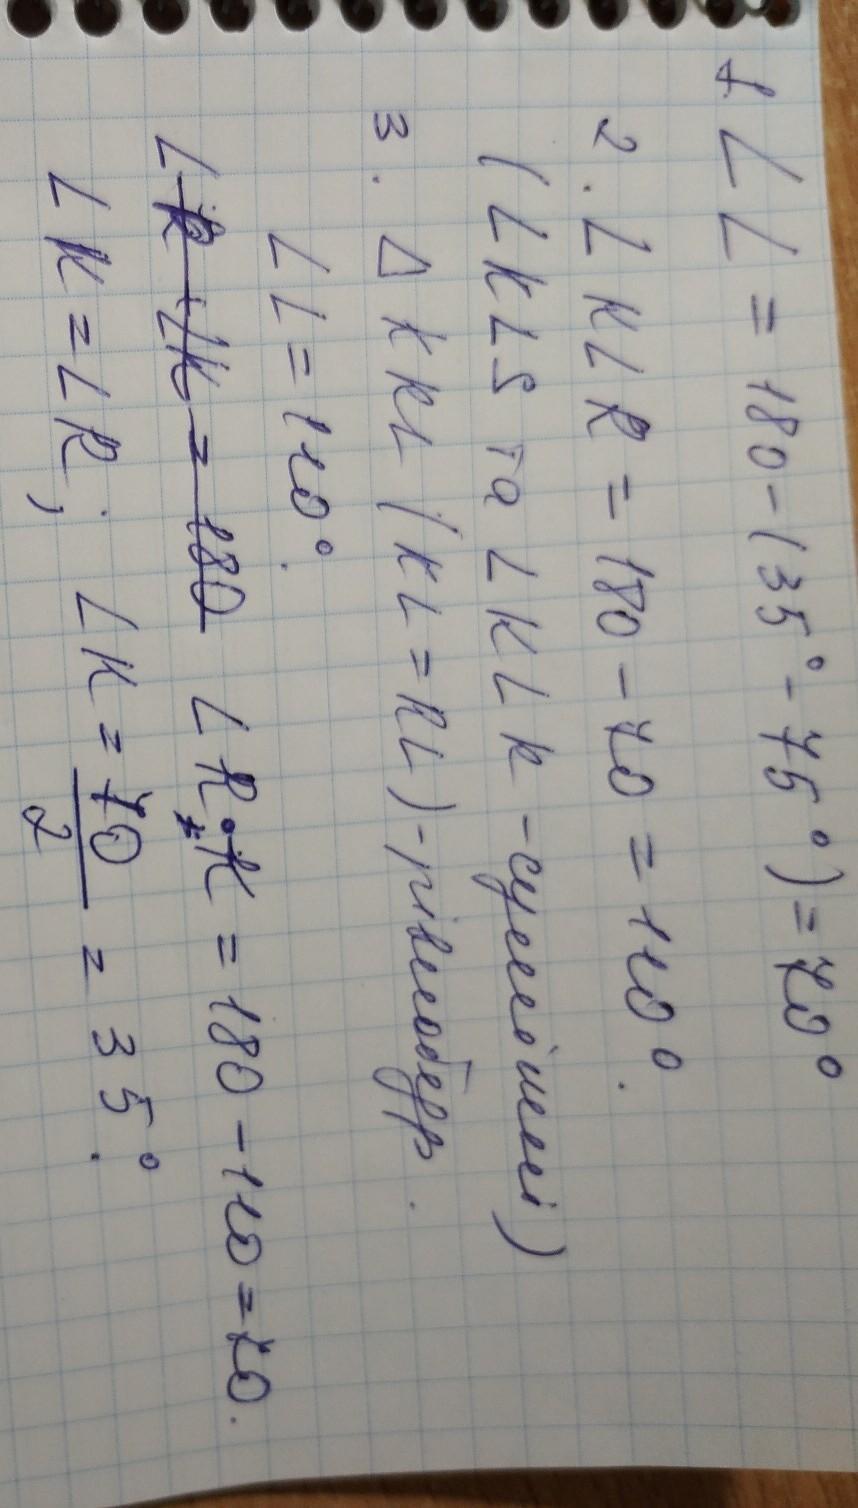 1. ∠L = 180-(35°-75°)=70°
2. ∠KLR = 180-70=110°.
(∠KLS та ∠KLR -суміжні)
3. Δ KRL (KL=RL)-рівнобедр.
∠L=110°.
∠R+∠K=180 ∠R+K=180-110=70.
∠K=∠R; ∠K=70/2=35°.